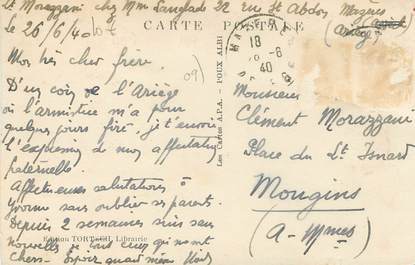 Lt Morazzani chez Mme Langlade 22 rue St Abdon Mazères
(Ariège)
le 26/6/40
CARTE POSTALE
Mon très cher frère.
D'un coin de l'Ariège
où l'armistice m'a pour
quelques jours fixé, je t'envoie
l'expression de mon affectation
fraternelle.
Affectueuses salutations à
Yvonne sans oublier ses parents.
Depuis 2 semaines suis sans
nouvelles de tous ceux qui me sont
chers. Espoir quand même
(09)
Edition TORTECH, Librairie
Les Cartes A.P.A. - POUX ALBI
18
40
Monsieur
Clément Morazzani
Place du Lt Isnard
Mougins
(A-Mmes)